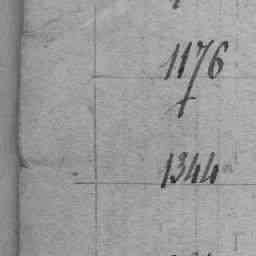 1176
1344